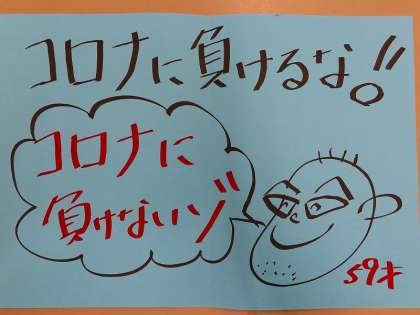 コロナに負けるな!!
コロナに
負けないゾ
59才